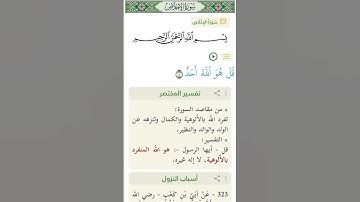 سورة الإخلاص
سورة الإخلاص
بسم الله الرحمن الرحيم
قُلْ هُوَ ٱللَّهُ أَحَدٌ
تفسير المختصر
من مقاصد السورة:
تفرد الله بالألوهية والكمال وتنزهه عن
الولد والوالد والنظير.
التفسير:
قل - أيها الرسول -: هو الله المنفرد
بالألوهية، لا إله غيره.
أسباب النزول
323 - عَنْ أُبَيِّ بْنِ كَعْبٍ - رضي الله